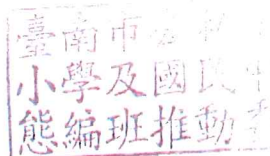 臺南市
小學及國民
態編班推動